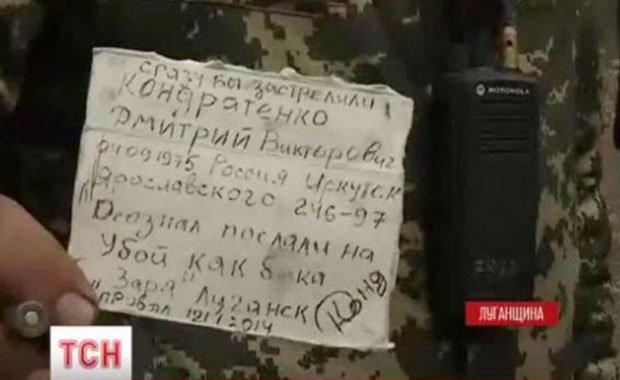 сразу бы застрелили
Кондратенко
Дмитрий Викторович
04091975 Россия Иркутск
Ярославского 246-97
Осознал послали на
Убой как быка
"Заря" Луганск Коня
прибыл
MOTOROLA
ЛУГАНЩИНА
ТСН